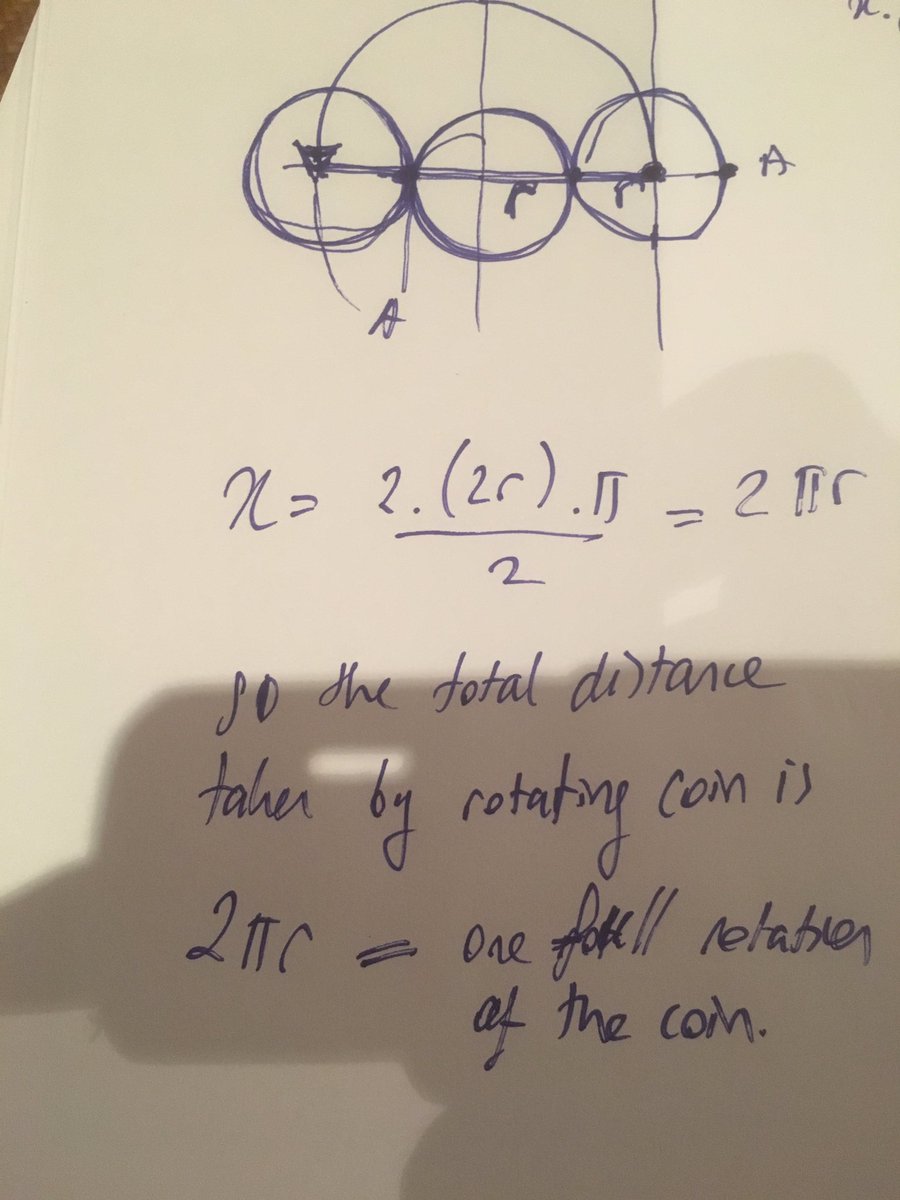 x.
A
r r
A
x = 2.(2r).π / 2 = 2πr
so the total distance
taken by rotating coin is
2πr = one full rotation
of the coin.